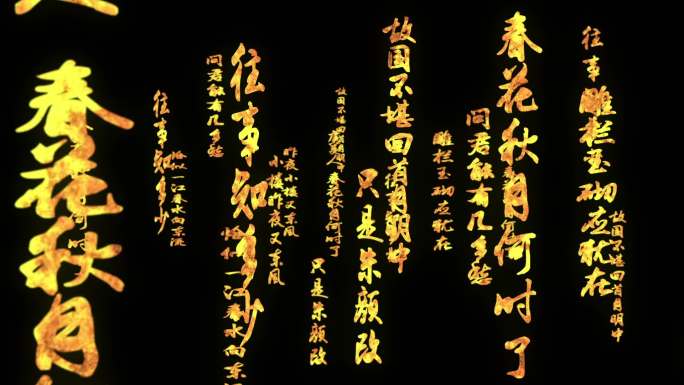 故国不堪回首月明中
往事雕栏玉砌应犹在
春花秋月何时了
问君能有几多愁
雕栏玉砌应犹在
故国不堪回首月明中
只是朱颜改
故国不堪回
春花秋月何时了
只是朱颜改
昨夜小楼又东风
小楼昨夜又东风
往事知多少
恰似一江春水向东流
问君能有几多愁
恰似一江春水向东流
往事知多少
春花秋月
何时